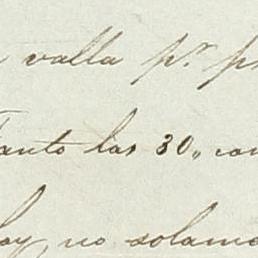 valla pr. p
Tanto las 30,, con
hoy, no solame